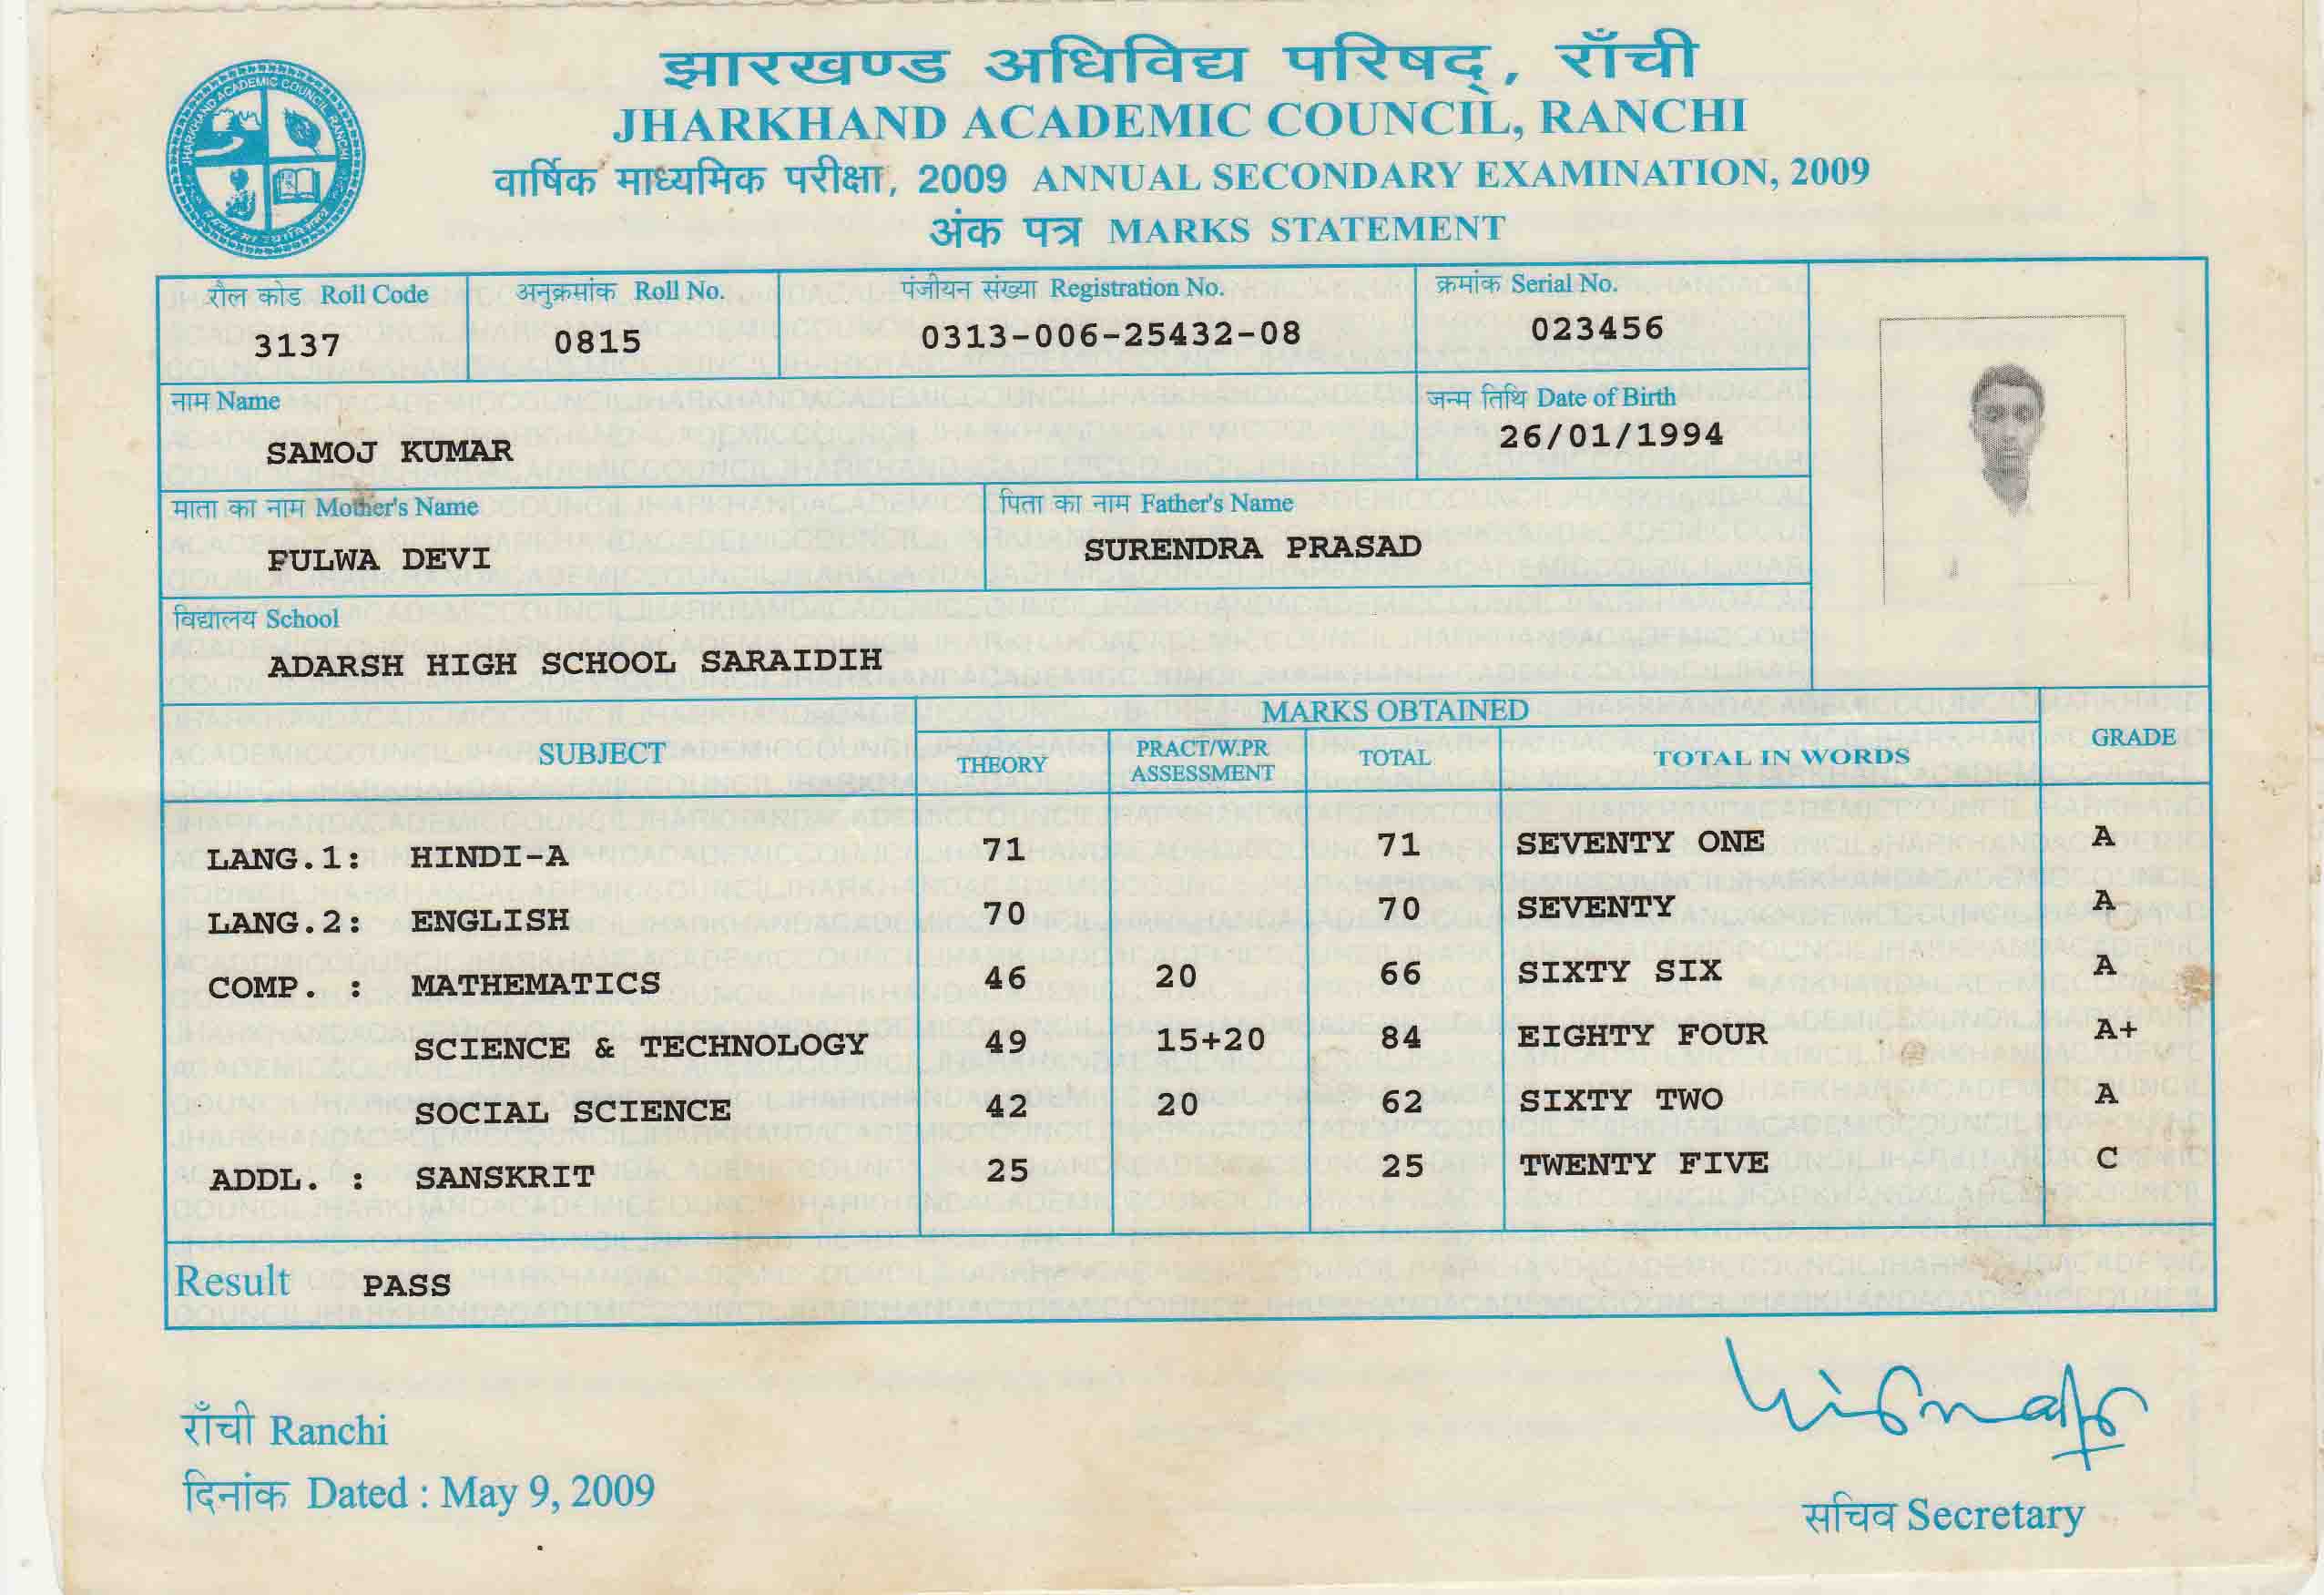 झारखण्ड अधिविद्य परिषद्, राँची
JHARKHAND ACADEMIC COUNCIL, RANCHI
वार्षिक माध्यमिक परीक्षा, 2009 ANNUAL SECONDARY EXAMINATION, 2009
अंक पत्र MARKS STATEMENT
JHARKHAND ACADEMIC COUNCIL RANCHI
रौल कोड Roll Code अनुक्रमांक Roll No. पंजीयन संख्या Registration No. क्रमांक Serial No.
3137 0815 0313-006-25432-08 023456
नाम Name जन्म तिथि Date of Birth
SAMOJ KUMAR 26/01/1994
माता का नाम Mother's Name पिता का नाम Father's Name
FULWA DEVI SURENDRA PRASAD
विद्यालय School
ADARSH HIGH SCHOOL SARAIDIH
SUBJECT MARKS OBTAINED GRADE
THEORY PRACT/W.PR ASSESSMENT TOTAL TOTAL IN WORDS
LANG.1: HINDI-A 71 71 SEVENTY ONE A
LANG.2: ENGLISH 70 70 SEVENTY A
COMP. : MATHEMATICS 46 20 66 SIXTY SIX A
SCIENCE & TECHNOLOGY 49 15+20 84 EIGHTY FOUR A+
SOCIAL SCIENCE 42 20 62 SIXTY TWO A
ADDL. : SANSKRIT 25 25 TWENTY FIVE C
Result PASS
राँची Ranchi
दिनांक Dated : May 9, 2009
सचिव Secretary